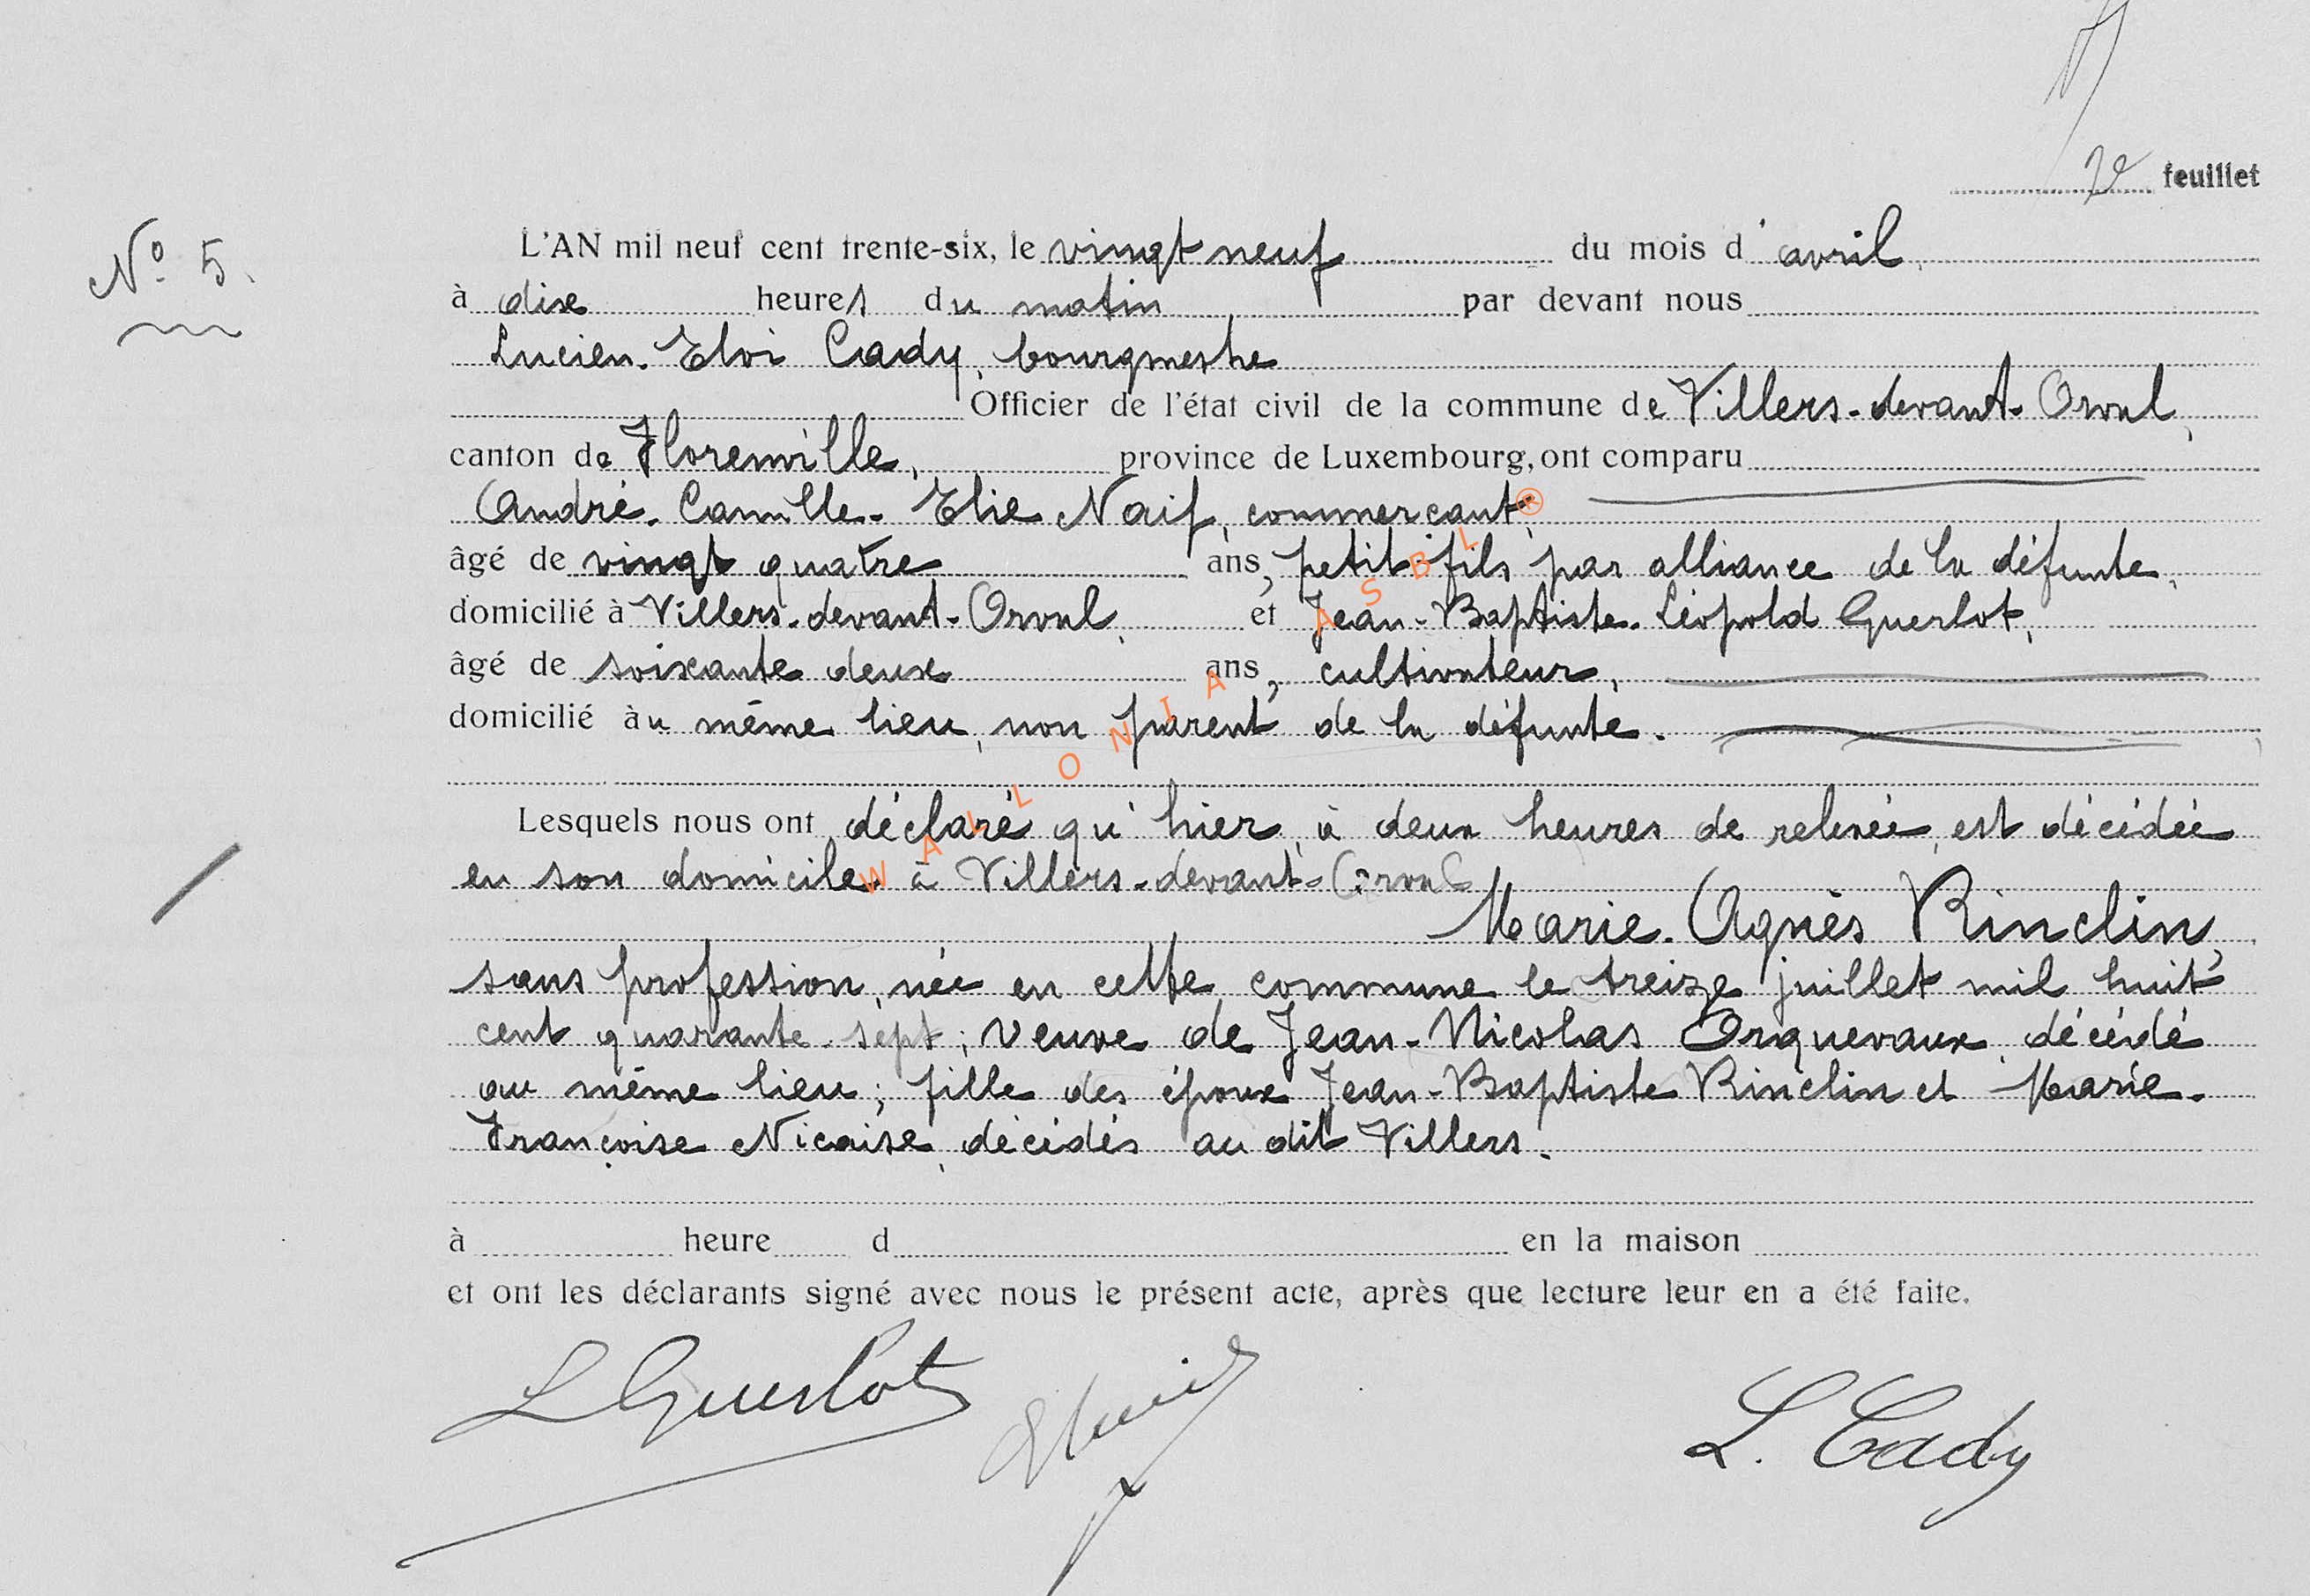 2e feuillet
No 5.
L'AN mil neuf cent trente-six, le vingt neuf du mois d'avril,
à dix heures du matin par devant nous
Lucien-Eloi Cady, bourgmestre
Officier de l'état civil de la commune de Villers-devant-Orval,
canton de Florenville, province de Luxembourg, ont comparu
André-Camille-Elie Naif, commerçant,
âgé de vingt quatre ans, petit-fils par alliance de la défunte,
domicilié à Villers-devant-Orval, et Jean-Baptiste-Léopold Guerlot,
âgé de soixante deux ans, cultivateur,
domicilié au même lieu, non parent de la défunte.
Lesquels nous ont déclaré qu'hier, à deux heures de relevée, est décédée
en son domicile à Villers-devant-Orval
Marie-Agnès Rinclin,
sans profession, née en cette commune le treize juillet mil huit
cent quarante-sept; veuve de Jean-Nicolas Orquevaux, décédé
au même lieu; fille des époux Jean-Baptiste Rinclin et Marie-
Françoise Nicaise, décédés au dit Villers.
à heure d en la maison
et ont les déclarants signé avec nous le présent acte, après que lecture leur en a été faite.
L Guerlot L. Cady
WALLONIA ASBL ®